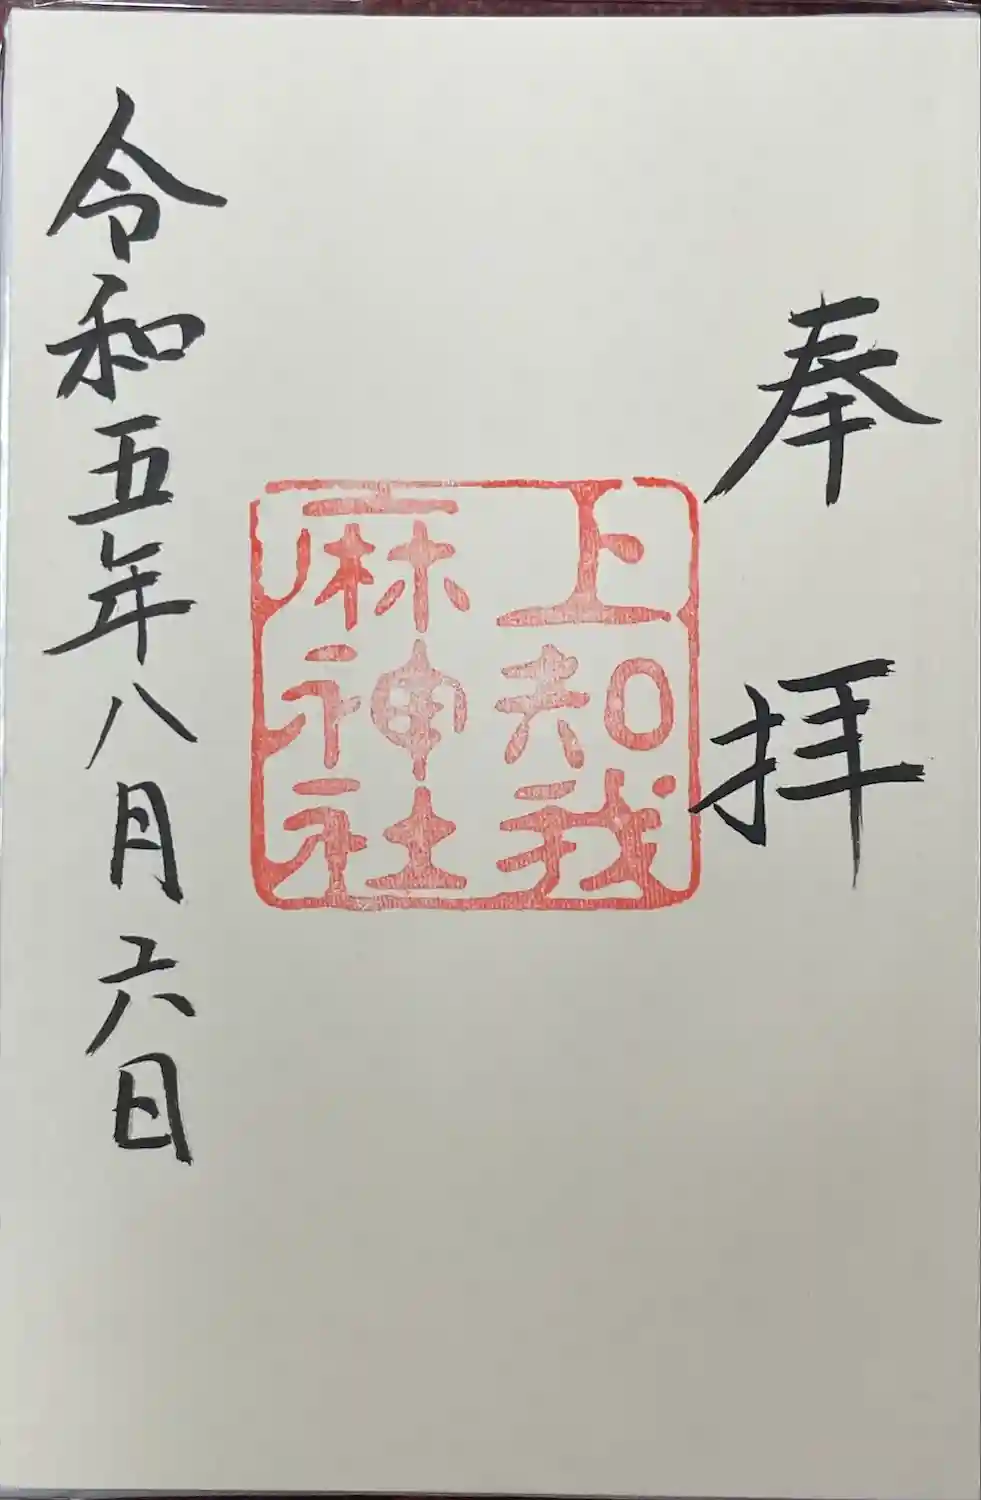 奉拝
上知我
麻神社
令和五年八月六日